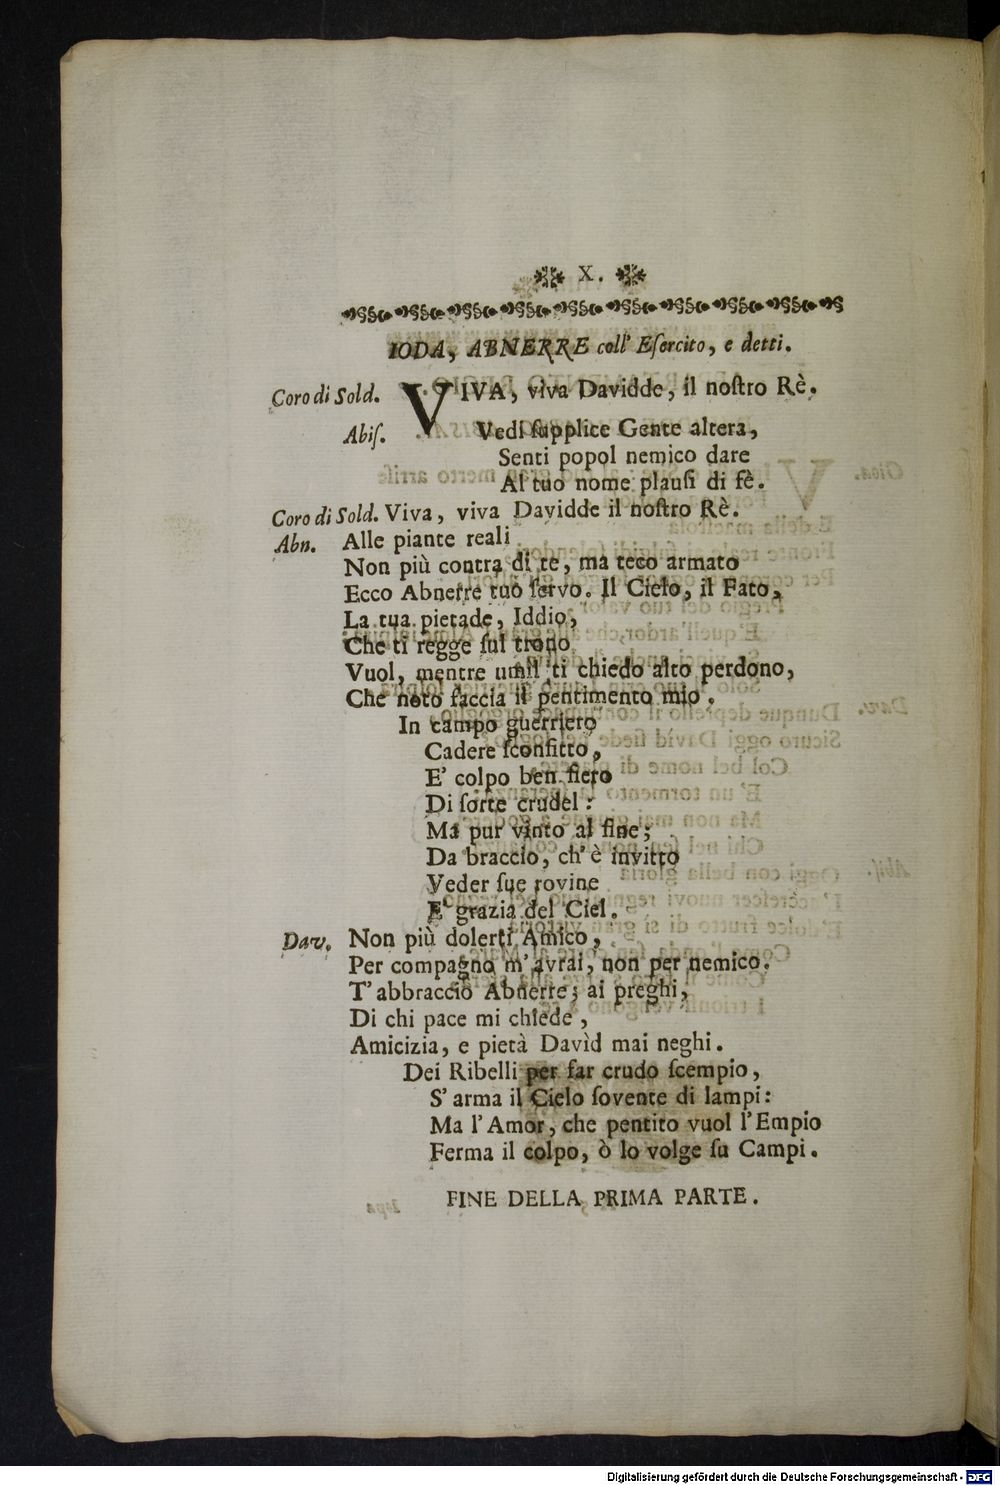 X.
IODA, ABNERRE coll' Eſercito, e detti.
Coro di Sold. VIVA, viva Davidde, il noſtro Rè.
Abiſ. Vedi ſupplice Gente altera,
Senti popol nemico dare
Al tuo nome plauſi di fè.
Coro di Sold. Viva, viva Davidde il noſtro Rè.
Abn. Alle piante reali
Non più contra di te, ma teco armato
Ecco Abnerre tuo ſervo. Il Cielo, il Fato,
La tua pietade, Iddio,
Che ti regge ſul trono
Vuol, mentre umil ti chiedo alto perdono,
Che noto faccia il pentimento mio.
In campo guerriero
Cadere ſconfitto,
E' colpo ben fiero
Di ſorte crudel:
Ma pur vinto al fine;
Da braccio, ch' è invitto
Veder ſue rovine
E' grazia del Ciel.
Dav. Non più dolerti Amico,
Per compagno m' avrai, non per nemico.
T' abbraccio Abnerre; ai preghi,
Di chi pace mi chiede,
Amicizia, e pietà Davìd mai neghi.
Dei Ribelli per far crudo ſcempio,
S' arma il Cielo ſovente di lampi:
Ma l' Amor, che pentito vuol l' Empio
Ferma il colpo, ò lo volge ſu Campi.
FINE DELLA PRIMA PARTE.
Digitalisierung gefördert durch die Deutsche Forschungsgemeinschaft - DFG